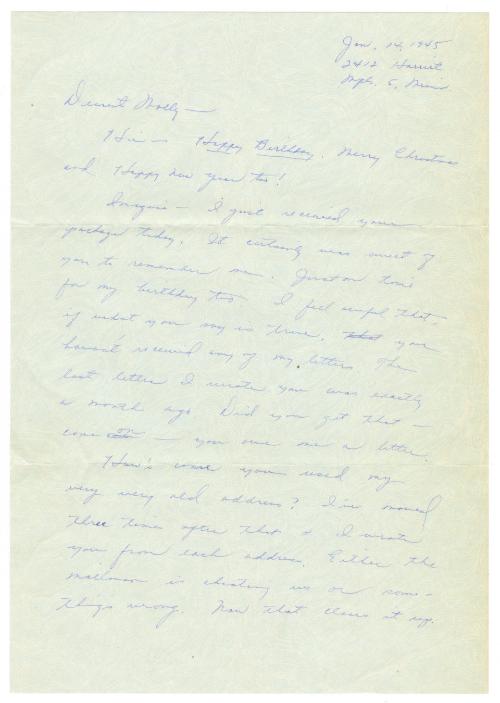 Jan. 14, 1945
2412 Harriet
Mpls. 5, Minn.
Dearest Molly —
Hi — Happy Birthday, Merry Christmas
and Happy New Year too!
Imagine — I just received your
package today. It certainly was sweet of
you to remember me. Just on time
for my birthday too. I feel awful that
if what you say is true, that you
haven't received any of my letters. The
last letter I wrote you was exactly
a month ago. Did you get that —
come on — you owe me a letter.
How's come you used my
very very old address? I've moved
three times after that & I wrote
you from each address. Either the
mailman is cheating us or some-
things wrong. Now that clears it up.